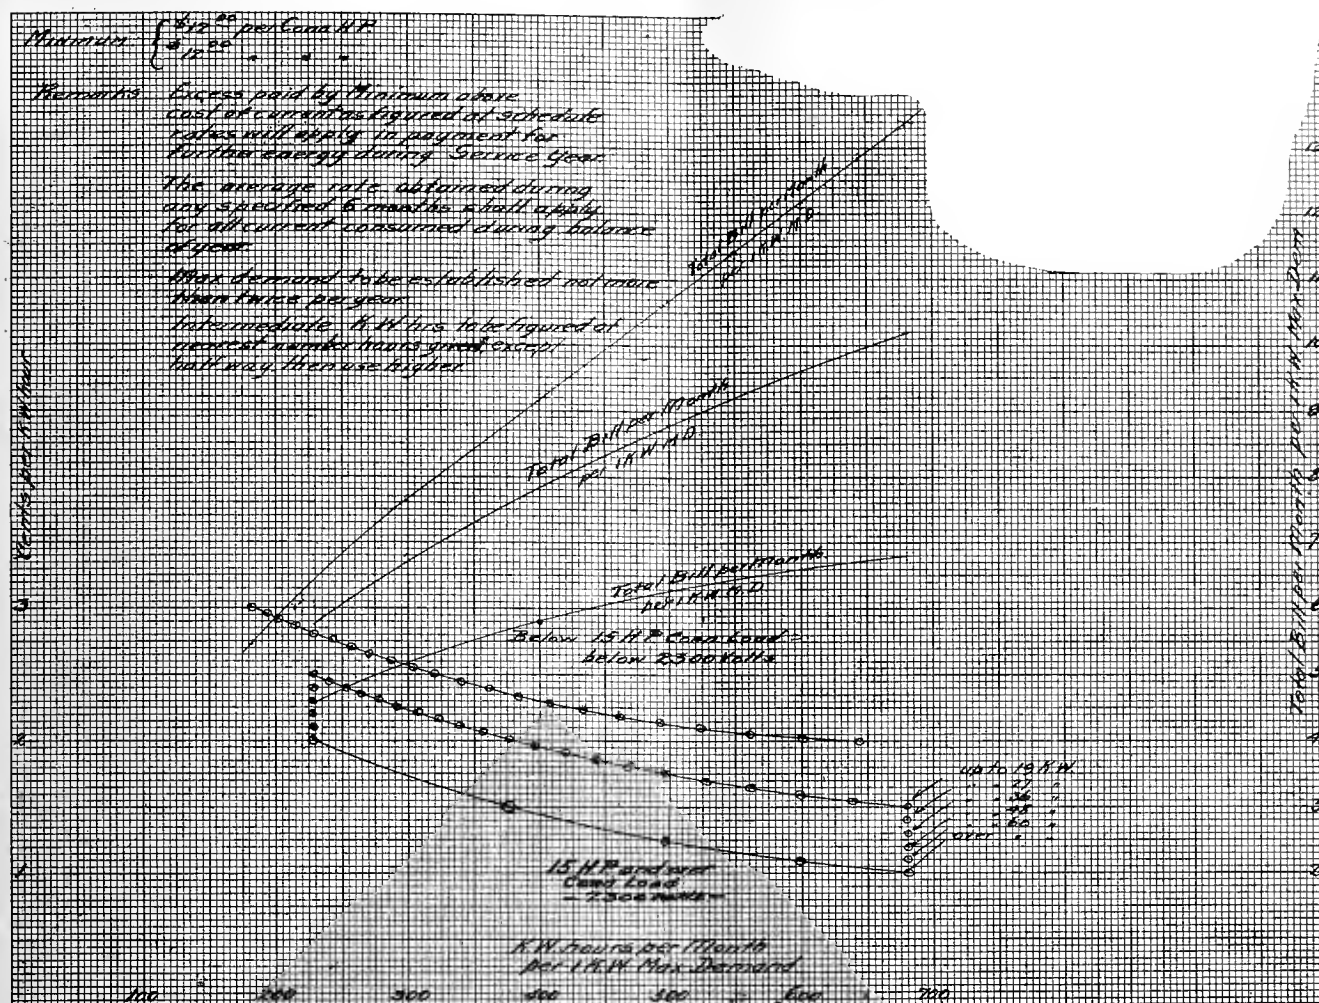 Minimum { $12.00 per Conn H.P.
$12.00 " " "
Remarks Excess paid by Minimum above
cost of current as figured at schedule
rates will apply in payment for
further energy during Service Year.
The average rate obtained during
any specified 6 months shall apply
for all current consumed during balance
of year.
Max demand to be established not more
than twice per year
Intermediate K.W hrs to be figured at
nearest number hours given, except
half way then use higher
Cents per K.W. hour
3
2
1
Total Bill per Month
per 1 K.W. M.D.
Total Bill per Month
per 1 K.W. M.D.
Total Bill per Month
per 1 K.W. M.D.
Below 15 H.P. Conn Load =
below 2300 Volts
up to 19 K.W.
" " 36 "
" " 48 "
" " 60 "
over " "
15 H.P. and over
Conn Load
K.W. hours per Month
per 1 K.W. Max Demand
100 200 300 400 500 600 700
Total Bill per Month per 1 K.W. Max Dem